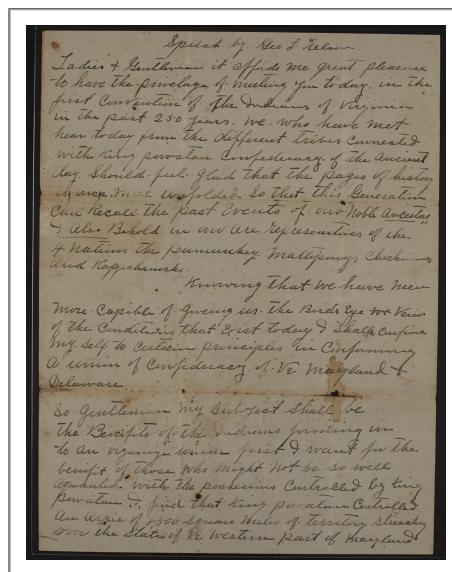 Speech by Geo L Nelson
Ladies & Gentlemen it affods me great pleasure
to have the privelage of meeting you today. in the
first Convention of the Indians of Virginia
in the past 250 years. We who have met
hear today from the different tribes Connected
with King powatan Confederacy of the ancient
day. Should feel glad that the pages of history
is once more unfolded. So that this Generation
Can Recall the past Events of our Noble Ancestors
& also Behold in our are Representives of the
4 Nations the pamunkey. Mattaponys
and Rappahannocks.
Knowing that we have men
More Capible of Giving us the Birds Eye View
of the Conditions that Exist today I Shall Confine
My self to certain principles in Conforming
a union of Confederacy of Va Maryland &
Delaware.
So Gentleman My Subject Shall be
the Benifits of the Indians forming in
to an organize union first I want for the
benefit of those who might Not be so well
aquanted with the possesions Controlled by King
Powatan I find that King powatan Controlled
An square Miles of territory
over the State of Va Western part of Maryland